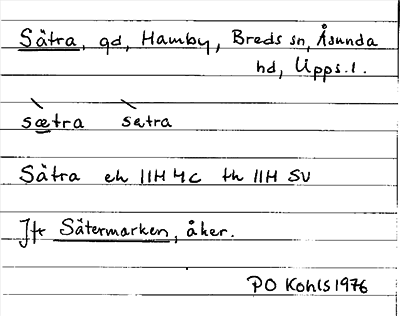 Sätra, gd, Hamby, Breds sn, Åsunda
hd, Upps. l.
sætra sætra
Sätra ek 11H 4c th 11H SV
Jfr Sätermarken, åker.
PO Kohls 1976